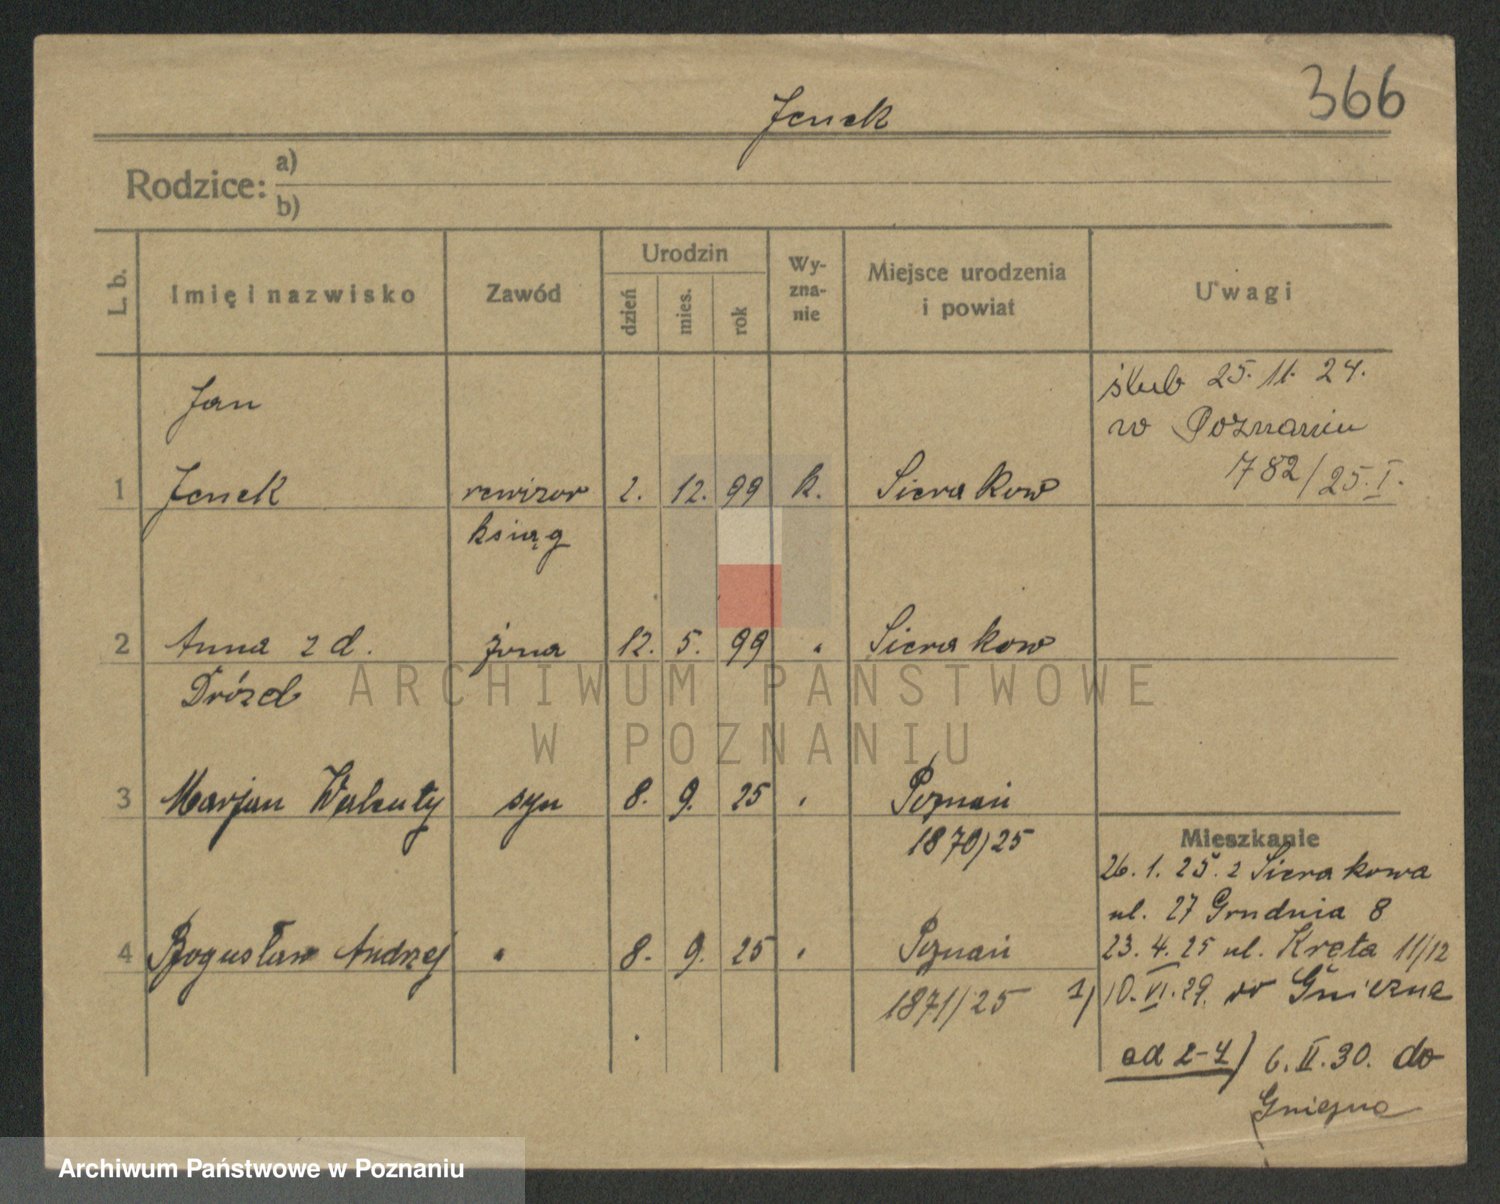 366
Jenek
Rodzice: a)
b)
L. b. Imię i nazwisko Zawód Urodzin dzień mies. rok Wyznanie Miejsce urodzenia i powiat Uwagi
ślub 25. 11. 24.
Jan
w Poznaniu
782/25.I.
1 Jenek rewizor 2. 12. 99 k. Sierakow
ksiąg
2 Anna z d. żona 12. 5. 99 " Sierakow
Drózd
ARCHIWUM PAŃSTWOWE
W POZNANIU
3 Marjan Walenty syn 8. 9. 25 " Poznań
1870/25
Mieszkanie
26. 1. 25. z Sierakowa
ul. 27 Grudnia 8
4 Bogusław Andrzej " 8. 9. 25 " Poznań
23. 4. 25 ul. Kręta 11/12
1871/25
1) 10. VI. 29. do Gniezna
od 2-4) 6. II. 30. do
Gniezna
Archiwum Państwowe w Poznaniu